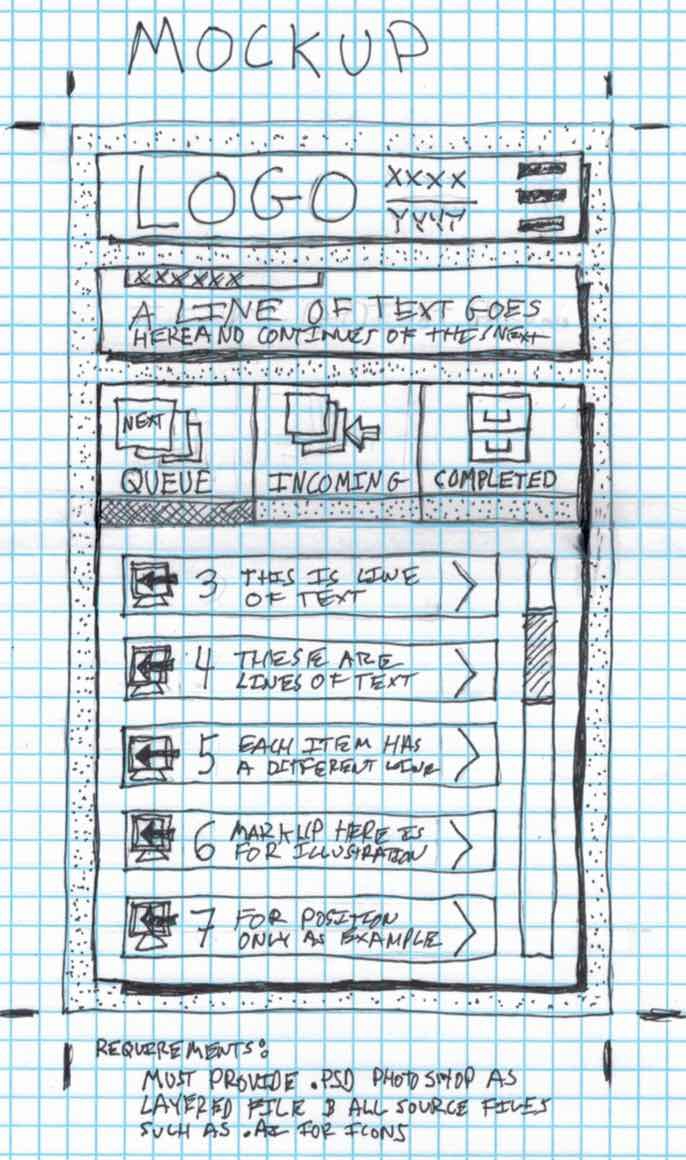 MOCKUP
LOGO
XXXX
YYYY
XXXXXX
A LINE OF TEXT GOES
HERE AND CONTINUES OF THIS NEXT
NEXT
QUEUE
INCOMING
COMPLETED
3 THIS IS LINE
OF TEXT
4 THESE ARE
LINES OF TEXT
5 EACH ITEM HAS
A DIFFERENT LINE
6 MARKUP HERE IS
FOR ILLUSTRATION
7 FOR POSITION
ONLY AS EXAMPLE
REQUIREMENTS:
MUST PROVIDE .PSD PHOTOSHOP AS
LAYERED FILE & ALL SOURCE FILES
SUCH AS .AI FOR ICONS